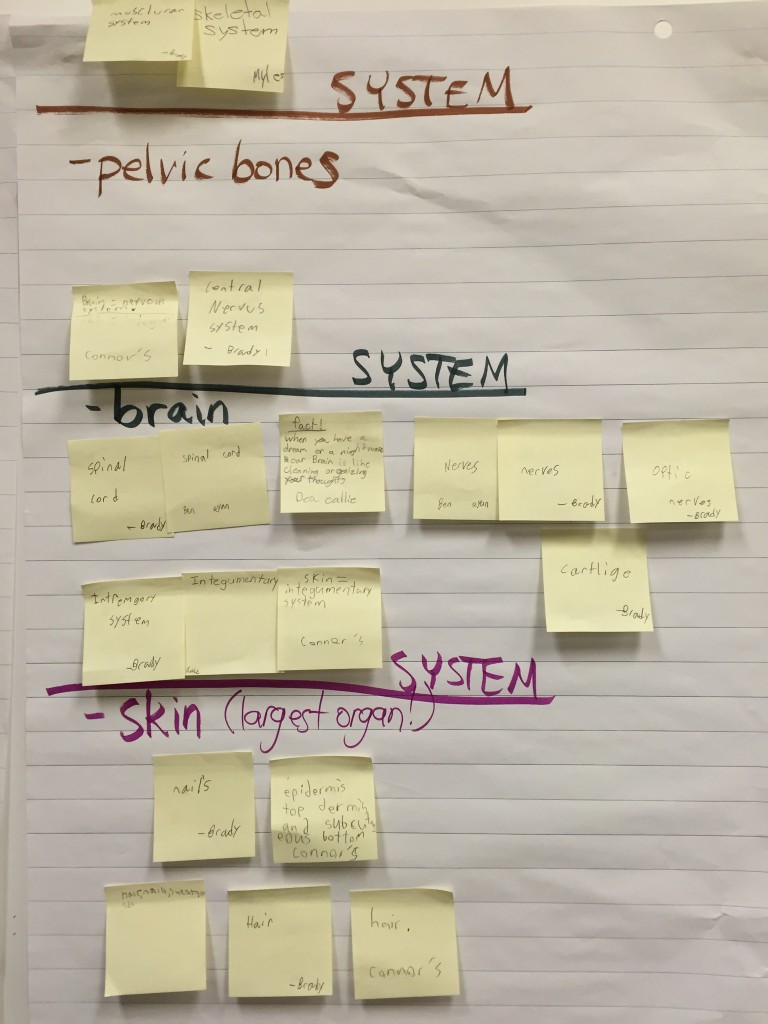 musclurar
system
skeletal
system
Myles
SYSTEM
-pelvic bones
Brain = nervous
system.
Connor's
Central
Nervus
system
- Brady!
SYSTEM
-brain
Spinal
cord
-Brady
spinal cord
Ben ayan
fact!
when you have a
dream or a nightmare
your Brain is like
cleaning organizing
your thoughts
Dea callie
Nerves
Ben ayan
nerves
-Brady
Optic
nerves
-Brady
cartlige
-Brady
system
-Brady
Integumentary
skin =
integumentary
system
Connor's
SYSTEM
-skin (largest organ!)
nails
-Brady
epidermis
top dermis
and subcut
eous bottom
Connor's
Hair
-Brady
hair.
Connor's